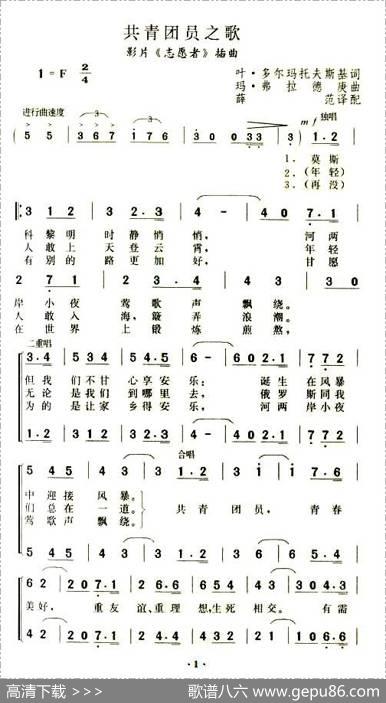 共青团员之歌
影片《志愿者》插曲
1=F 2/4
叶·多尔玛托夫斯基词
玛·弗拉德庚曲
薛范译配
进行曲速度
mf 独唱
5 5 | 3 6 7 1 7 6 | 5 0 3 3 | 3 3 ) | 1·2 |
1. 莫斯
2. (年轻)
3. (再没)
3 1 2 | 3 2·3 | 4 - | 4 0 7·1 |
科黎明时静悄悄, 河两
人敢上天登云霄, 年轻
有别的路更加好, 甘愿
2 7 1 | 2 3·4 | 3 - | 3 0
岸小夜莺歌声飘绕。
人敢入海,簸弄浪潮。
在世界上锻炼煎熬,
二重唱
3·4 | 5 3 4 | 5 4·5 | 6 - | 6 0 2·1 | 7 7 2 |
但我们不甘心享安乐; 诞生在风暴
无论是我们到哪里去, 俄罗斯同我
为的是让家乡得安乐, 河两岸小夜
1·2 | 3 1 2 | 3 2·3 | 4 - | 4 0 2·1 | 7 7 2 |
合唱
5 4 5 | 4 3 | 3 1·2 | 3 - | 3 1·7 | 6 5 |
中迎接风暴。
们总在一道。
莺歌声飘绕。
共青团员, 青春
5 4 5 | 4 3
6 2 | 2 0 7·1 | 2 2·1 | 7 5·4 | 3 - | 3 0 8 6 |
美好, 重友谊、重理想,生死相交。 有需
4 2 | 2 0 7·1 | 2 2·1 | 7 5·4 | 3 - | 1 0 6·6 |
·1·
高清下载 >>>
歌谱八六 www.gepu86.com